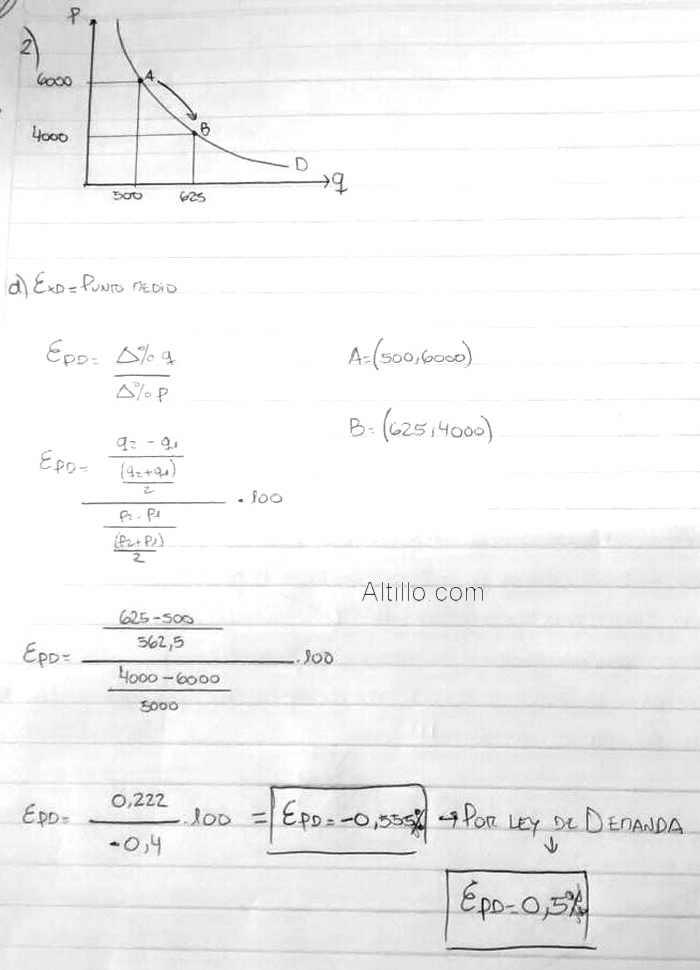 2)
P
6000
A
4000
B
D
500
625
q
d) Exd = Punto medio
EPD = Δ%q
Δ%P
A=(500,6000)
B=(625,4000)
EPD = q2 - q1
(q2+q1)
2
. 100
P2 - P1
(P2+P1)
2
Altillo.com
EPD = 625-500
562,5
.100
4000-6000
5000
EPD = 0,222
-0,4
.100 = EPD = -0,555% → Por ley de Demanda
↓
EPD = 0,5%